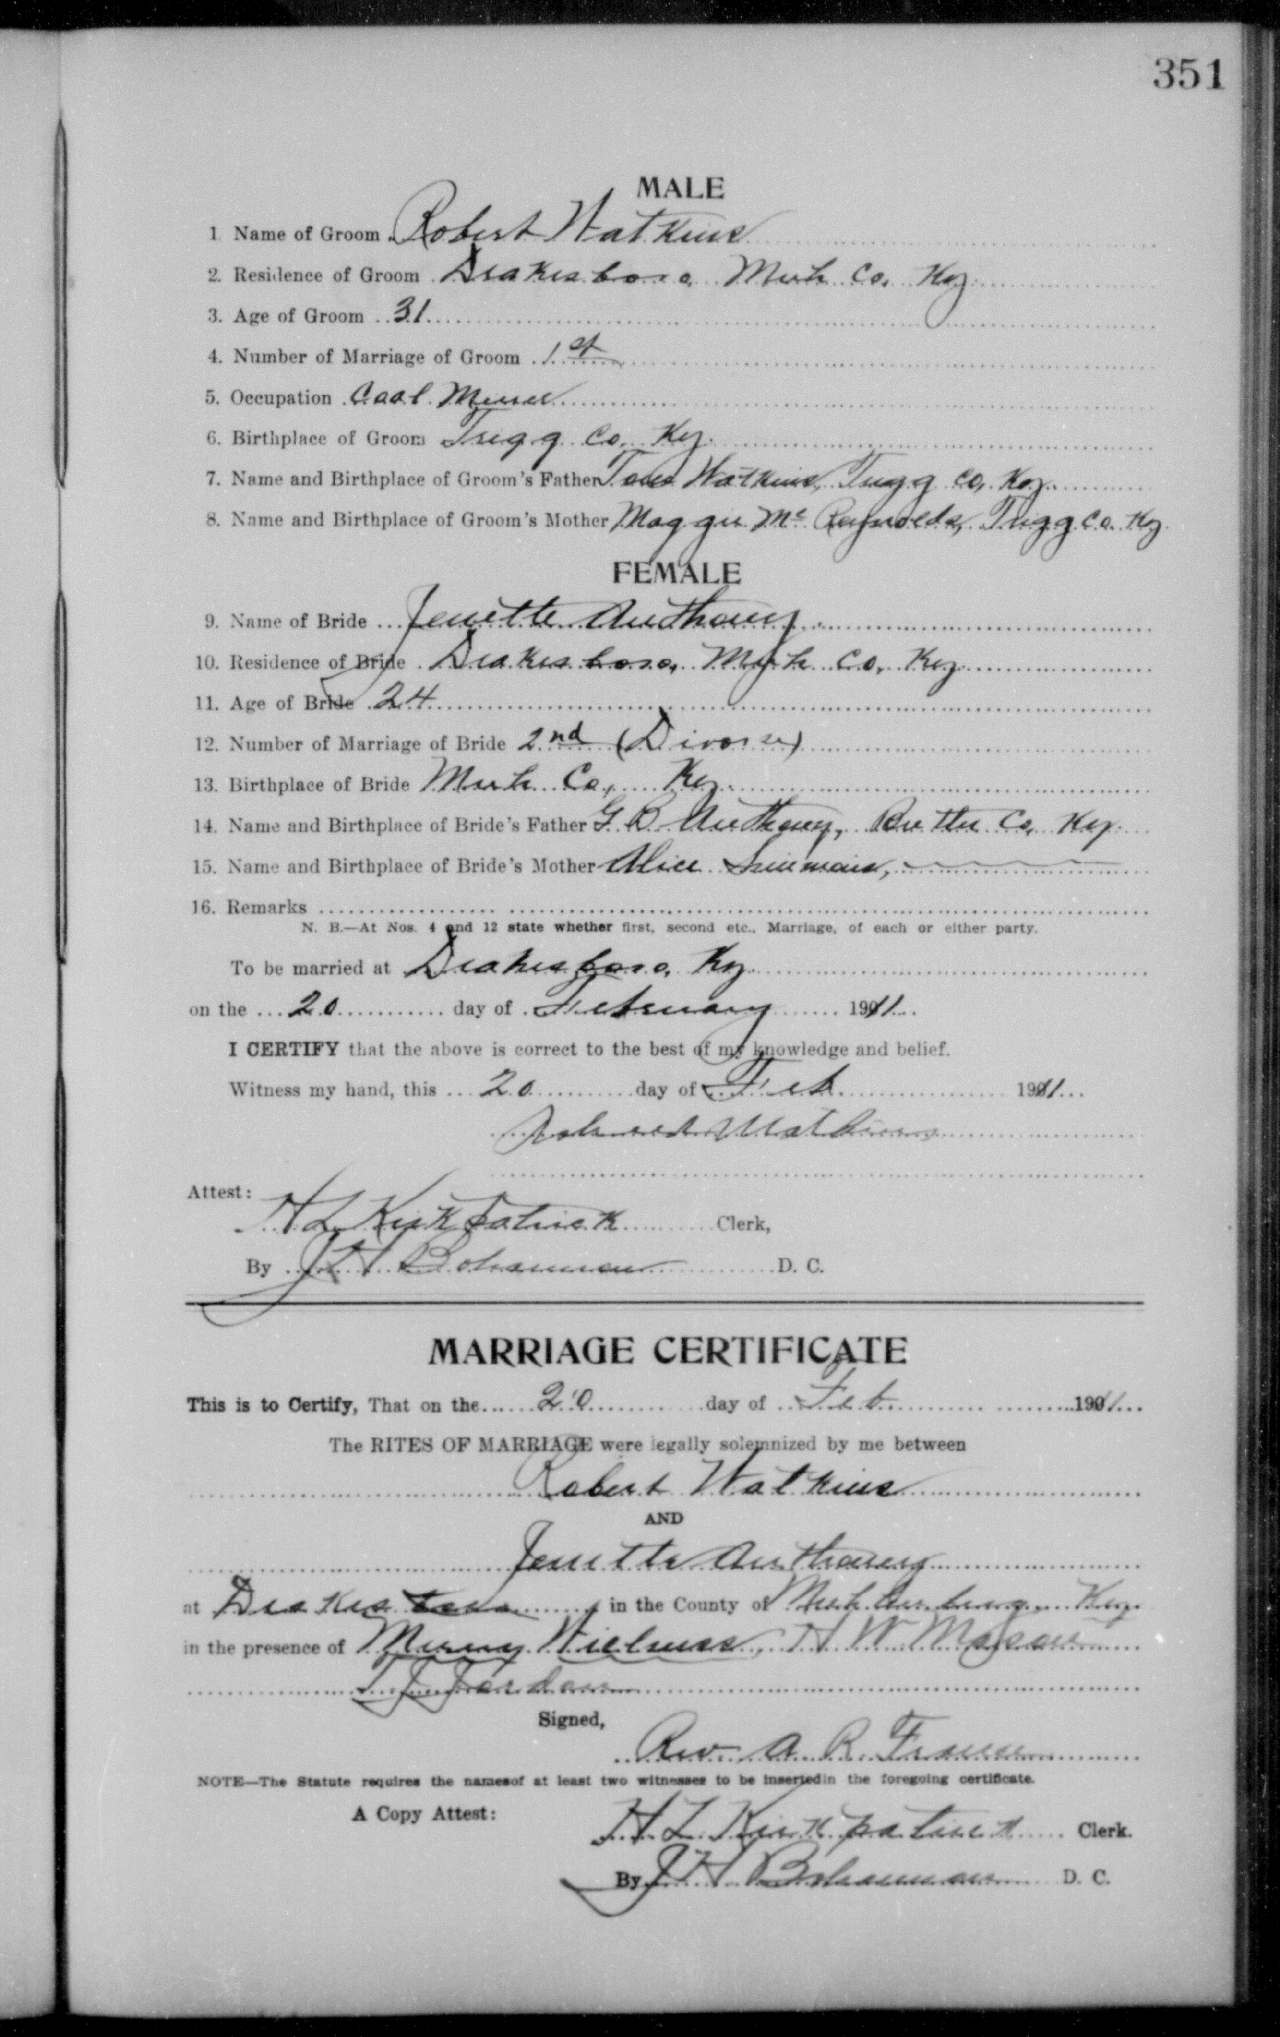 351
MALE
1. Name of Groom Robert Watkins
2. Residence of Groom Drakesboro, Muh Co, Ky
3. Age of Groom 31
4. Number of Marriage of Groom 1st
5. Occupation Coal Miner
6. Birthplace of Groom Trigg Co, Ky.
7. Name and Birthplace of Groom's Father Tom Watkins, Trigg Co, Ky.
8. Name and Birthplace of Groom's Mother Maggie Mc Reynolds, Trigg Co. Ky
FEMALE
9. Name of Bride Jenette Anthony
10. Residence of Bride Drakesboro, Muh Co, Ky
11. Age of Bride 24
12. Number of Marriage of Bride 2nd (Divorse)
13. Birthplace of Bride Muh Co, Ky.
14. Name and Birthplace of Bride's Father G B Anthony, Butler Co, Ky
15. Name and Birthplace of Bride's Mother Alice Simmons,
16. Remarks
N. B.—At Nos. 4 and 12 state whether first, second etc., Marriage, of each or either party.
To be married at Drakesboro, Ky
on the 20 day of February 1911
I CERTIFY that the above is correct to the best of my knowledge and belief.
Witness my hand, this 20 day of Feb 1911
Robert Watkins
Attest:
H L Kirkpatrick Clerk,
By J H Bohannan D. C.
MARRIAGE CERTIFICATE
This is to Certify, That on the 20 day of Feb 1911
The RITES OF MARRIAGE were legally solemnized by me between
Robert Watkins
AND
Jenette Anthony
at Drakesboro, in the County of Muhlenburg Ky.
in the presence of H W Mason
T J Jordan
Signed,
Rev A R
NOTE—The Statute requires the namesof at least two witnesses to be insertedin the foregoing certificate.
A Copy Attest:
H L Kirkpatrick Clerk.
By J H Bohannan D. C.